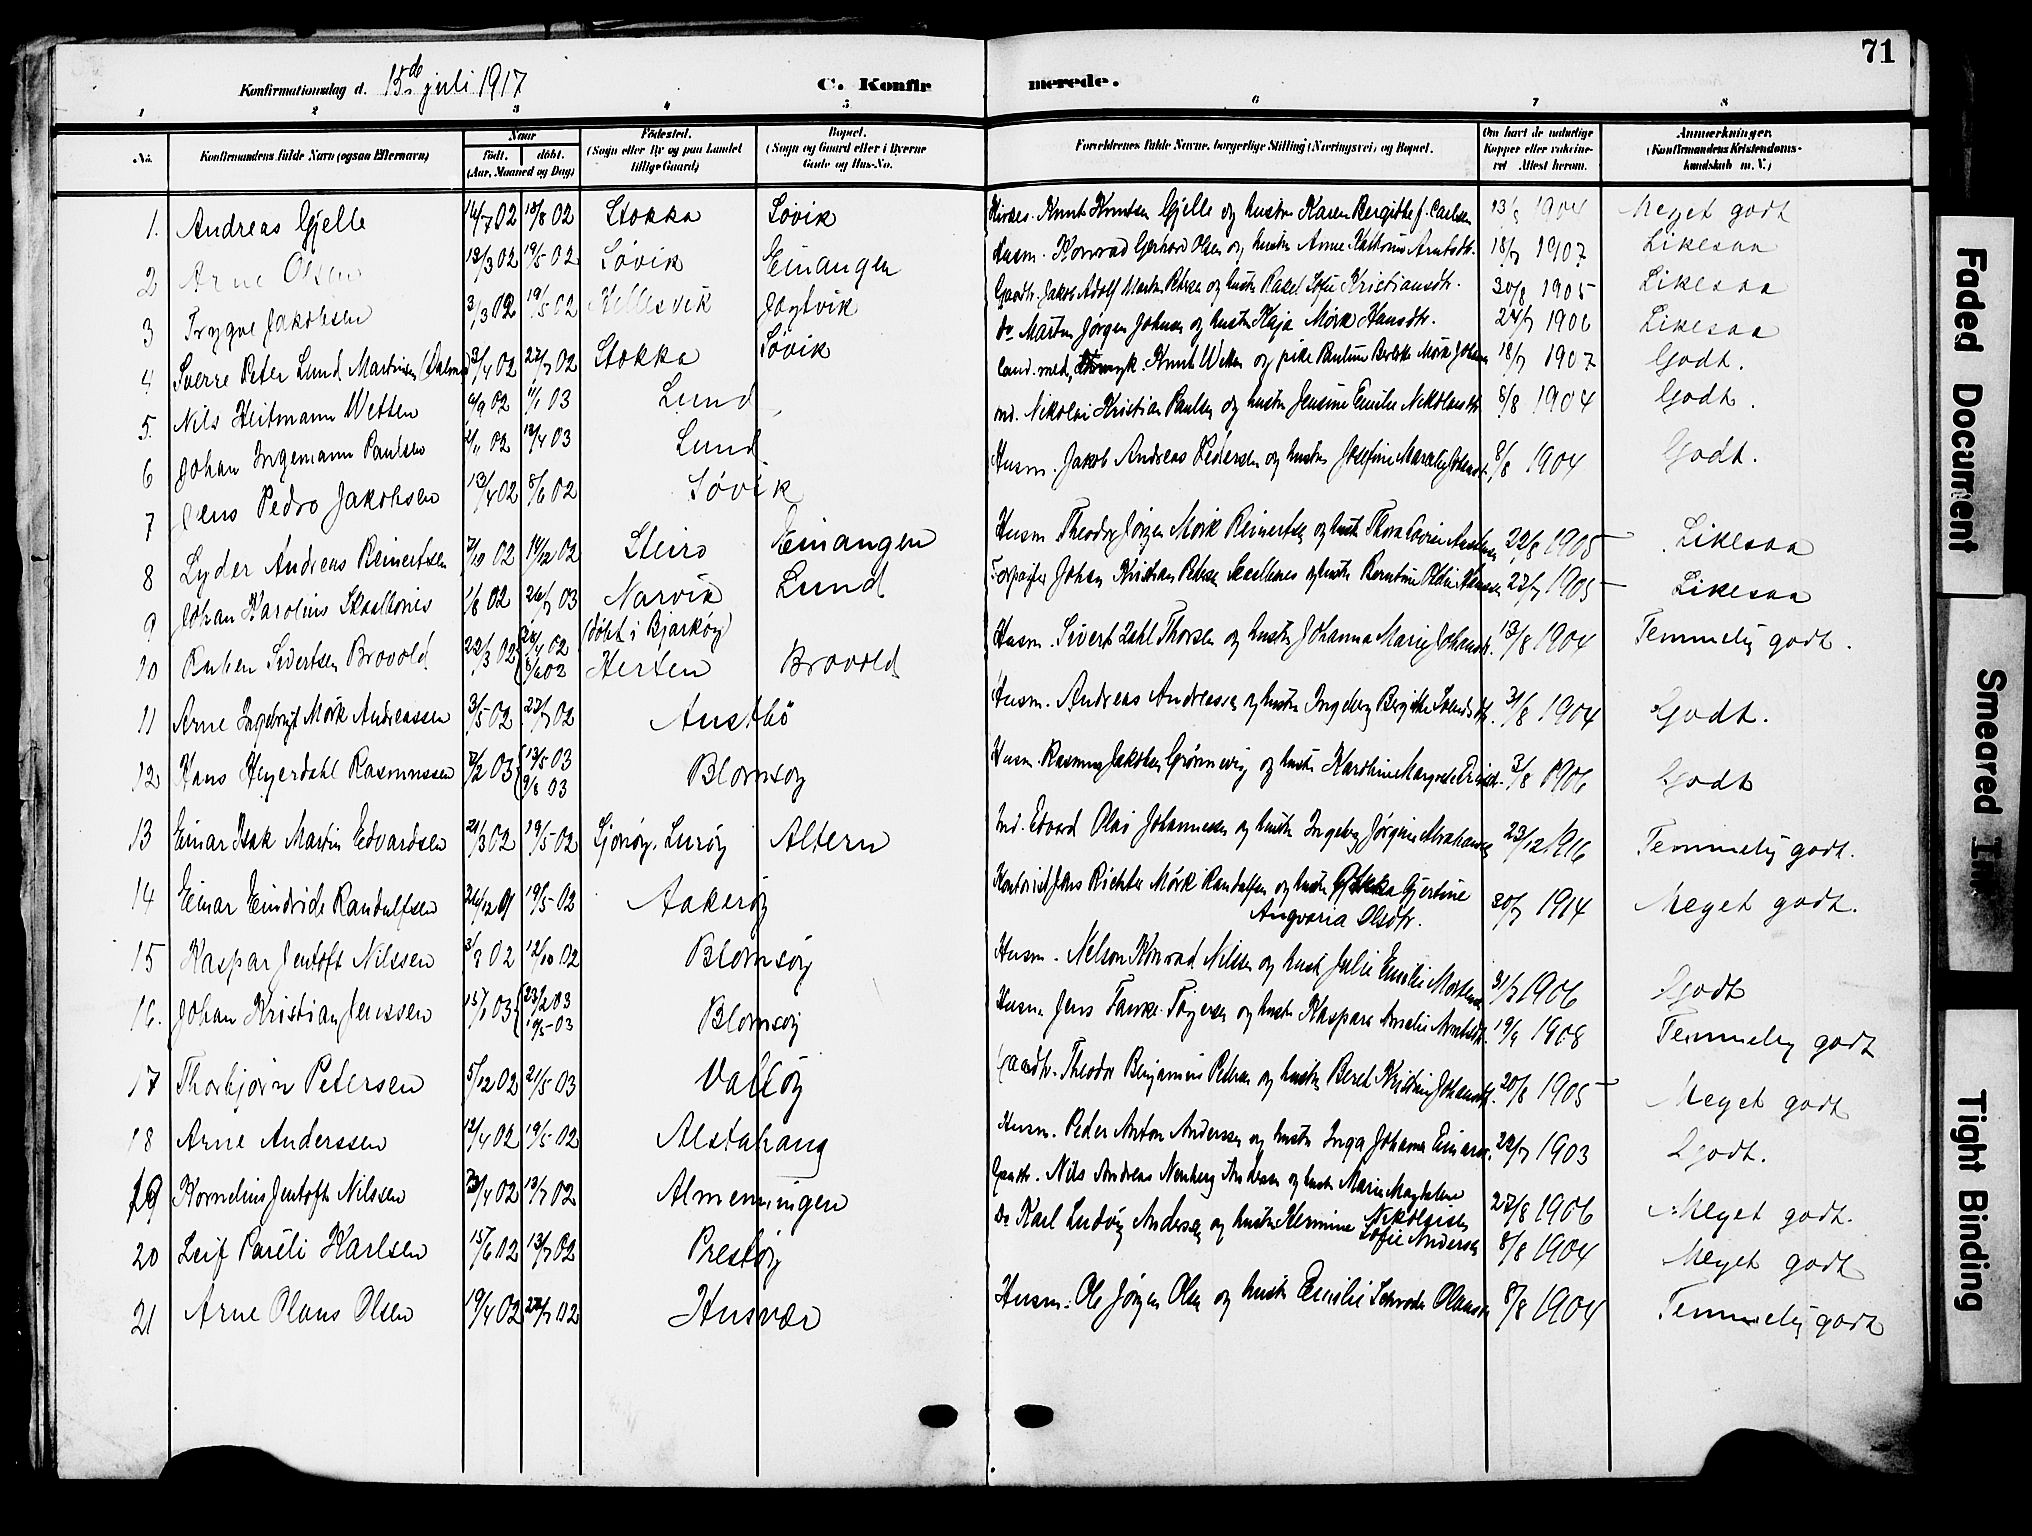 71
Konfirmationsdag d. 15de juli 1917 C. Konfirmerede.
1 2 3 4 5 6 7 8
No. Konfirmandens fulde Navn (ogsaa Efternavn) Naar født. døbt. (Aar, Maaned og Dag) Fødested. (Sogn eller By og paa Landet tillige Gaard) Bopæl. (Sogn og Gaard eller i Byerne Gade og Hus-No. Forældrenes fulde Navne, borgerlige Stilling (Næringsvei) og Bopæl. Om havt de naturlige Kopper eller vaccineret Attest herom. Anmærkninger. (Konfirmandens Kristendomskundskab m. V.)
1. Andreas Gjelle 14/7 02 18/8 02 Stokka Søvik Knut Knutsen Gjelle og hustru Karen Bergitte f. Carlsen 1904 Meget godt
2 Arne Olsen 12/3 02 19/5 02 Søvik Einangen Husm. Konrad Gerhard Olsen og hustru Anne Kathrine 18/7 1907 Likesaa
3 Trygve Jakobsen 3/3 02 19/5 02 Jøgtvik Gaardbr. Jakob Adolf Martin Petersen og hustru Rakel Sofie Kristiansdtr. 30/8 1905 Likesaa
4 Sverre Peter Lund Martinsen 3/4 02 27/7 02 Stokka Søvik Do Martin Jørgen Johnsen og hustru Kaja Mørk Hansdtr. 24/7 1906 Likesaa
5. Nils Heitmann Wetten 4/9 02 1/1 03 Lund Knut Wetten og pike Pauline 18/7 1907 Godt.
6 Johan Ingemann Paulsen 2/11 02 13/4 03 Lund Ind. Nikolai Kristian Paulsen og hustru Jensine Emilie 8/8 1904 Godt.
7 Jens Pedro Jakobsen 13/4 02 8/6 02 Søvik Husm. Jakob Andreas Pedersen og hustru Josefine 8/8 1904 Godt.
8 Lyder Andreas Reinertsen 7/10 02 14/12 02 Steiro Einangen Husm. Theodor Jørgen Mørk Reinertsen og hustru Thora 22/8 1905 Likesaa
9 Johan Karolius Skseltones 1/8 02 26/7 03 Narvik Lund Johan Kristian Petersen og hustru Berntine 27/7 1905 Likesaa
10 Ruben Sivertsen Brovold 22/3 02 (døbt i Bjarkøy) 02 Herten Brovold Husm. Sivert Zahl Thorsen og hustru Johanna Marie Johansdtr. 13/8 1904 Temmelig godt.
11 Arne Ingebrigt Mørk Andreassen 3/5 02 27/7 02 Austbø Husm. Andreas Andreassen og hustru Ingeborg Bergitte 31/8 1904 Godt.
12 Hans Heyerdahl Rasmussen 7/2 03 13/5 03 9/8 03 Blomsøy Husm. Rasmus Jakobsen Grønnevig og hustru Karoline Margrete 3/8 1906 Godt
13 Einar Isak Martin Edvardsen 21/3 02 19/5 02 Lurøy Altern Ind. Edvard Olai Johannesen og hustru Ingeborg Jørgine 23/12 1916 Temmelig godt.
14 Einar Eindride Randulfsen 24/12 01 19/5 02 Aakerøy Kontorist Jens Richter Mørk Randulfsen og hustru Gjertine Angvaria Olsdtr. 30/7 1914 Meget godt.
15 Kaspar Jentoft Nilssen 3/8 02 12/10 02 Blomsøy Husm. Nelson Konrad Nilssen og hustru Julie Emilie 31/7 1906 Godt
16. Johan Kristian Jenssen 15/1 03 23/2 03 19/5 03 Blomsøy Husm. Jens og hustru Kaspara Amalie 1908 Temmelig godt
17 Thorbjørn Petersen 5/12 02 21/5 03 Valløy Gaardbr. Theodor Benjamin Petersen og hustru Beret Kristine Johansdtr. 20/8 1905 Meget godt
18 Arne Anderssen 12/4 02 19/5 02 Alstahaug Husm. Peder Anton Anderssen og hustru Inga Johanna 22/7 1903 Godt.
19 Kornelius Jentoft Nilssen 23/4 02 13/7 02 Almenningen Gaardbr. Nils Andreas og hustru Marie Magdalene Nikolaisen 27/8 1906 Meget godt.
20 Leif Pauli Karlsen 15/6 02 13/7 02 Prestøy Do Karl Ludvig Andersen og hustru Hermine Sofie Andersen 8/8 1904 Meget godt
21 Arne Olaus Olsen 19/4 02 27/7 02 Husvær Husm. Ole Jørgen Olsen og hustru Emilie 8/8 1904 Temmelig godt
Faded Document
Smeared Ink
Tight Binding